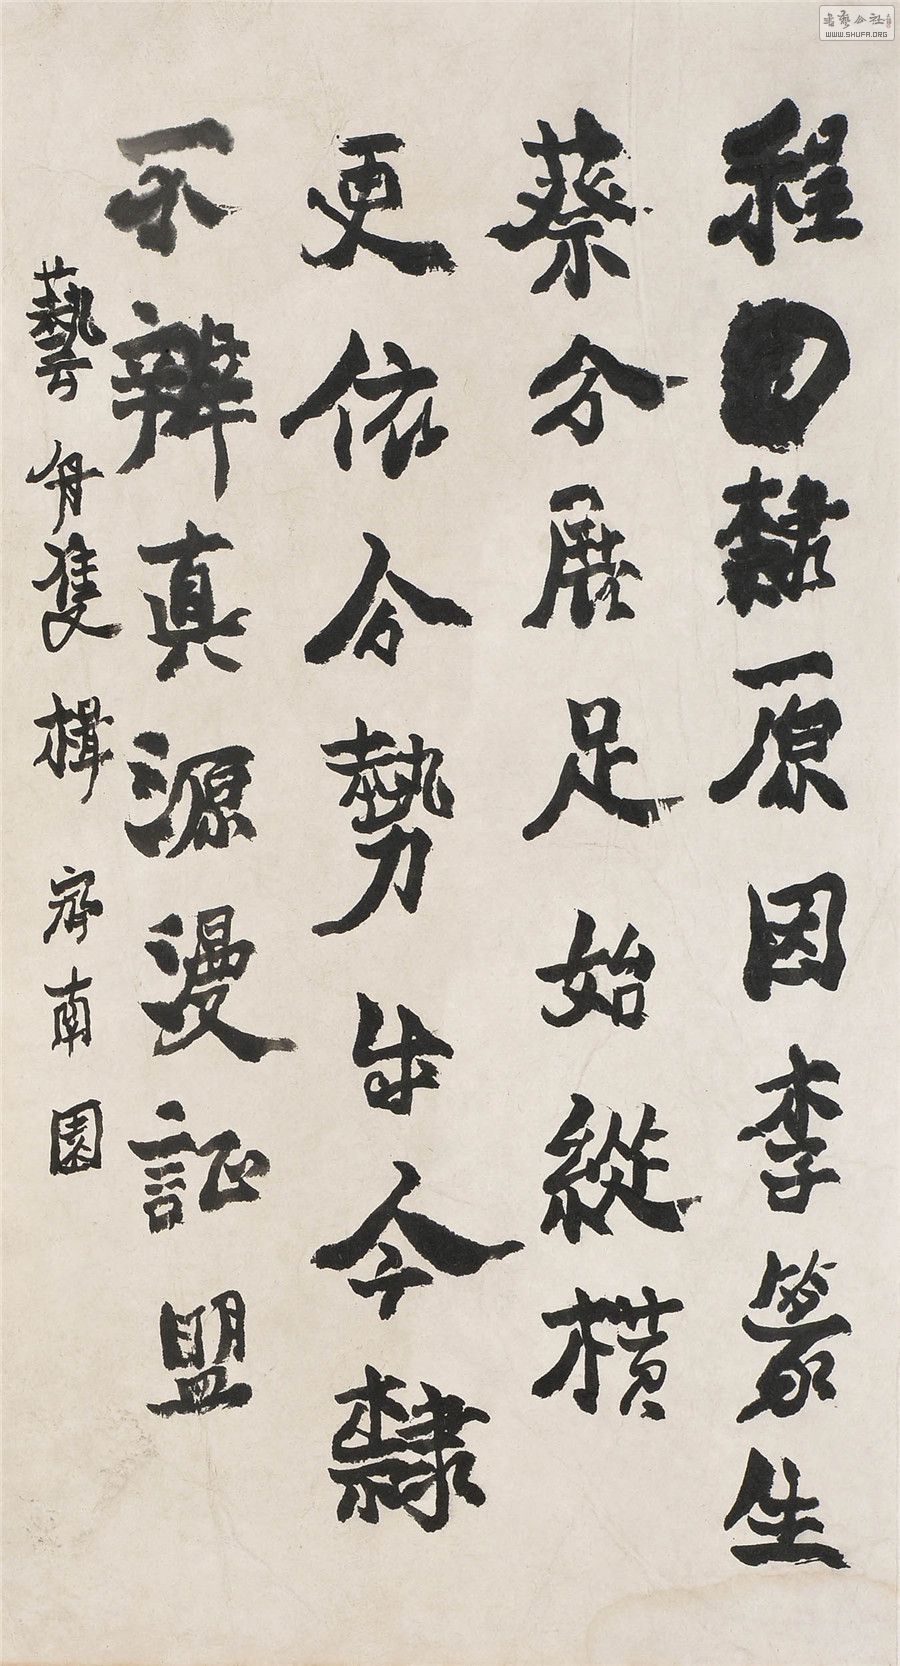 程隸原因李篆生
蔡分展足始縱橫
更依分勢成今隸
不辨真源漫証盟
藝舟雙楫 齊南園
書藝公社
WWW.SHUFA.ORG